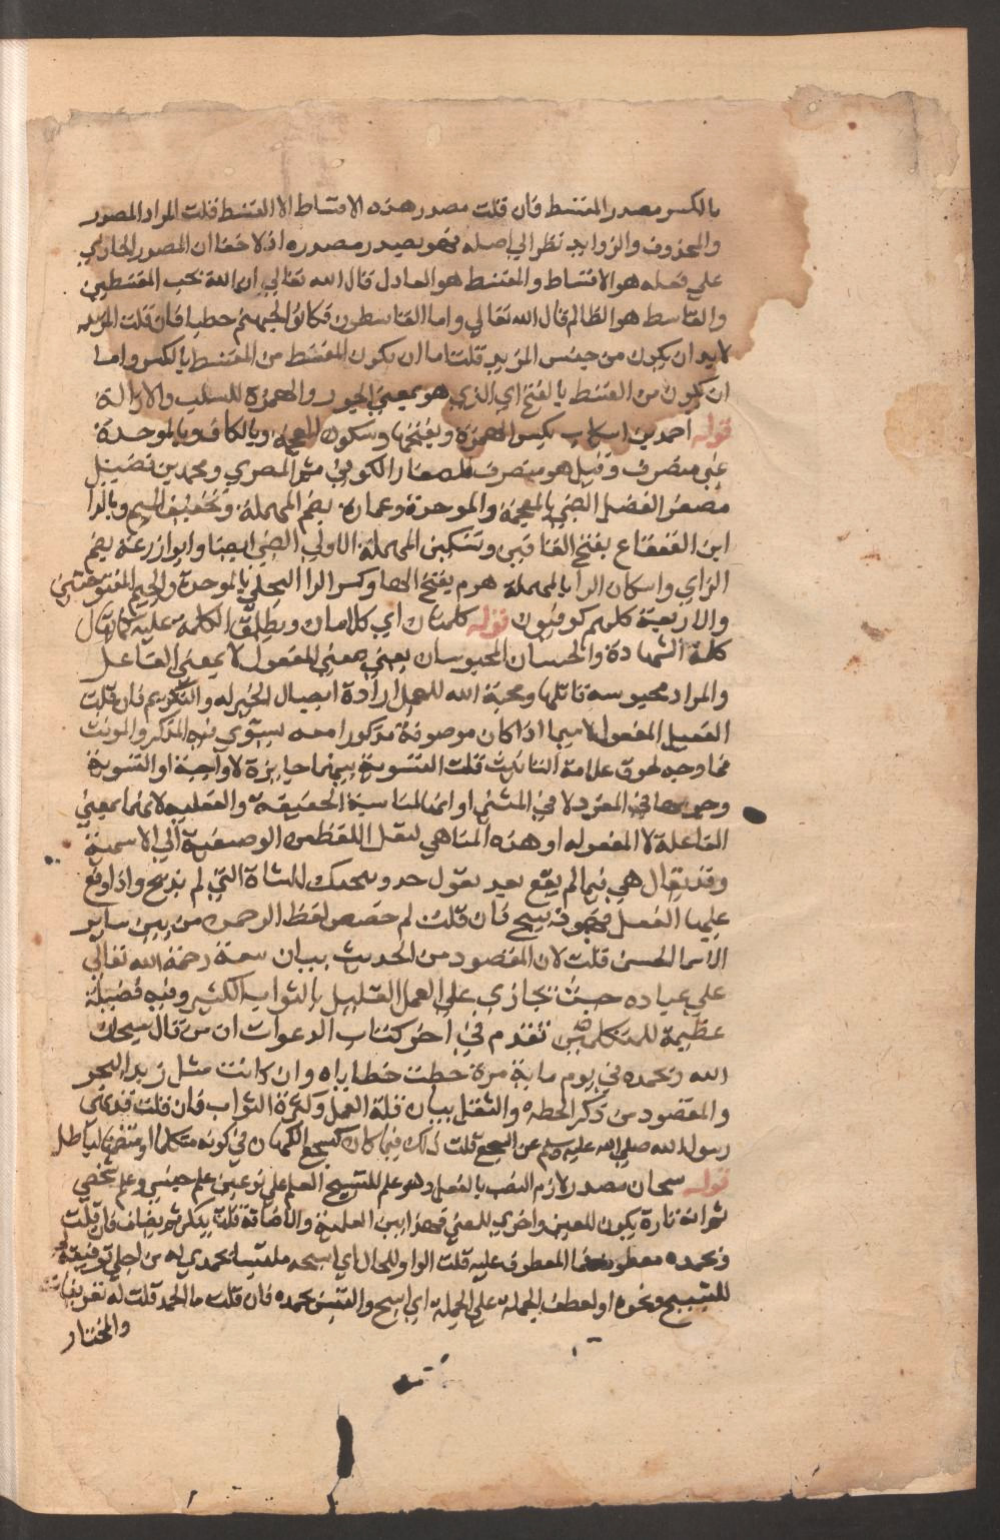 بالكسر مصدر المقسط فان قلت مصدر هذه الاقساط لا القسط قلت المراد المصدر
والمحذوف والزوايد نظرا الي اصله فهو مصدر مصدره اذ لا خفا ان المصدر الجاري
علي فعله هو الاقساط والمقسط هو العادل قال الله تعالي ان الله يحب المقسطين
والقاسط هو الظالم قال الله تعالي واما القاسطون فكانوا لجهنم حطبا فان قلت المزيد
لا بد ان يكون من جنس المزيد قلت اما ان يكون المقسط من القسط بالكسر واما
ان يكون من القسط بالفتح اي الذي هو بمعني الجور والهمزة للسلب والازالة
قوله احمد بن اشكاب بكسر الهمزة وبفتحها وسكون المعجمة وبالكاف وبالموحدة
غير منصرف وقيل هو منصرف الصفار الكوفي ثم المصري ومحمد بن فضيل
مصغر الفضل الضبي بالمعجمة والموحدة وعمارة بضم المهملة وتخفيف الميم وبالرا
ابن القعقاع بفتح القافين وتسكين المهملة الاولي الضبي ايضا وابو زرعة بضم
الزاي واسكان الرا بالمهملة هرم بفتح الها وكسر الرا البجلي بالموحدة والجيم المفتوحتين
والاربعة كلهم كوفيون قوله كلمتان اي كلامان وتطلق الكلمة عليه كما يقال
كلمة الشهادة والحبيبتان المحبوبتان يعني بمعني المفعول لا بمعني الفاعل
والمراد محبوبية قائلها ومحبة الله للعبد ارادة ايصال الخير له والتكريم فان قلت
الفعيل المفعول لا سيما اذا كان موصوفه مذكورا معه يستوي فيه المذكر والمونث
فما وجه لحوق علامة التانيث قلت التسوية بينهما جايزة لا واجبة او التسوية
وجوبها في المفرد لا في المثني او انها لمناسبة الخفيفة والثقيلة لانهما بمعني
الفاعلة لا المفعولة او هذه التا هي لنقل اللفظ من الوصفية الي الاسمية
وقد يقال هي فيما لم يقع بعد تقول خذ ذبيحتك للشاة التي لم تذبح واذا وقع
عليها الفعل فهي ذبيح فان قلت لم خصص لفظ الرحمن من بين ساير
الاسما الحسني قلت لان المقصود من الحديث بيان سعة رحمة الله تعالي
علي عباده حيث يجازي علي العمل القليل بالثواب الكثير وفيه فضيلة
عظيمة للكلمتين تقدم في اخر كتاب الدعوات ان من قال سبحان
الله وبحمده في يوم ماية مرة حطت خطاياه وان كانت مثل زبد البحر
والمقصود من ذكر الخفة والثقل بيان قلة العمل وكثرة الثواب فان قلت قد نهي
رسول الله صلي الله عليه وسلم عن السجع قلت ذلك فيما كان كسجع الكهان في كونه متكلفا او متضمنا لباطل
قوله سبحان مصدر لازم النصب بالفعل وهو علم للتسبيح العلم علي نوعين علم جنسي وعلم شخصي
ثم انه تارة يكون للعين واخري للمعني فهذا من العلمية والاضافة قلت ينكر ثم يضاف فان قلت
وبحمده معطوف فما المعطوف عليه قلت الواو للحال اي اسبحه ملتبسا بحمدي له من اجل توفيقه لي
للتسبيح ونحوه او لعطف الجملة علي الجملة اي اسبح والتبس بحمده فان قلت ما الحمد قلت له تعريفات
والمختار